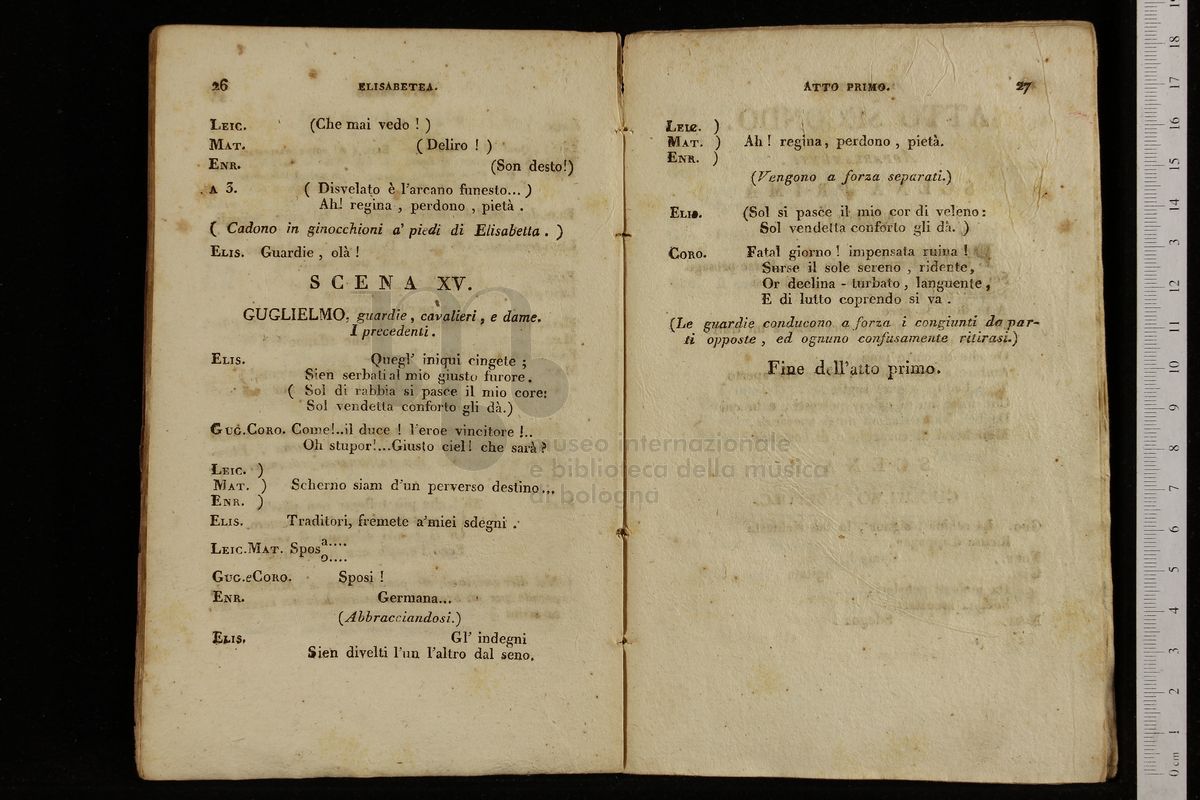 26 ELISABETEA.
LEIC. (Che mai vedo ! )
MAT. ( Deliro ! )
ENR. (Son desto!)
A 3. ( Disvelato è l'arcano funesto... )
Ah! regina , perdono , pietà .
( Cadono in ginocchioni a' piedi di Elisabetta . )
ELIS. Guardie , olà !
SCENA XV.
GUGLIELMO, guardie , cavalieri , e dame.
I precedenti .
ELIS. Quegl' iniqui cingete ;
Sien serbati al mio giusto furore.
( Sol di rabbia si pasce il mio core:
Sol vendetta conforto gli dà.)
GUG.CORO. Come!..il duce ! l'eroe vincitore !..
Oh stupor!...Giusto ciel! che sarà?
LEIC. )
MAT. ) Scherno siam d'un perverso destino...
ENR. )
ELIS. Traditori, fremete a'miei sdegni .
LEIC.MAT. Spos a....
o....
GUG.eCORO. Sposi !
ENR. Germana...
(Abbracciandosi.)
ELIS. Gl' indegni
Sien divelti l'un l'altro dal seno.
ATTO PRIMO. 27
LEIC. )
MAT. ) Ah! regina, perdono , pietà.
ENR. )
(Vengono a forza separati.)
ELIS. (Sol si pasce il mio cor di veleno:
Sol vendetta conforto gli dà. )
CORO. Fatal giorno ! impensata ruina !
Surse il sole sereno , ridente,
Or declina - turbato , languente ,
E di lutto coprendo si va .
(Le guardie conducono a forza i congiunti da par-
ti opposte , ed ognuno confusamente ritirasi.)
Fine dell'atto primo.
museo internazionale
e biblioteca della musica
di bologna
0 cm 1 2 3 4 5 6 7 8 9 10 11 12 13 14 15 16 17 18 19